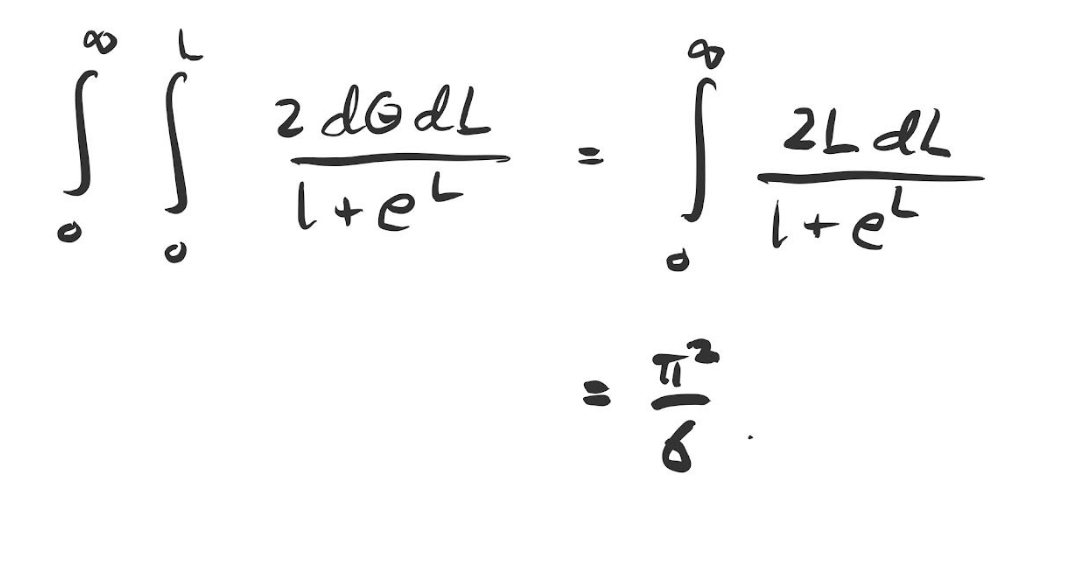 ∫₀^∞ ∫₀^L 2 dθ dL / (1 + e^L) = ∫₀^∞ 2L dL / (1 + e^L)
= π² / 6 .